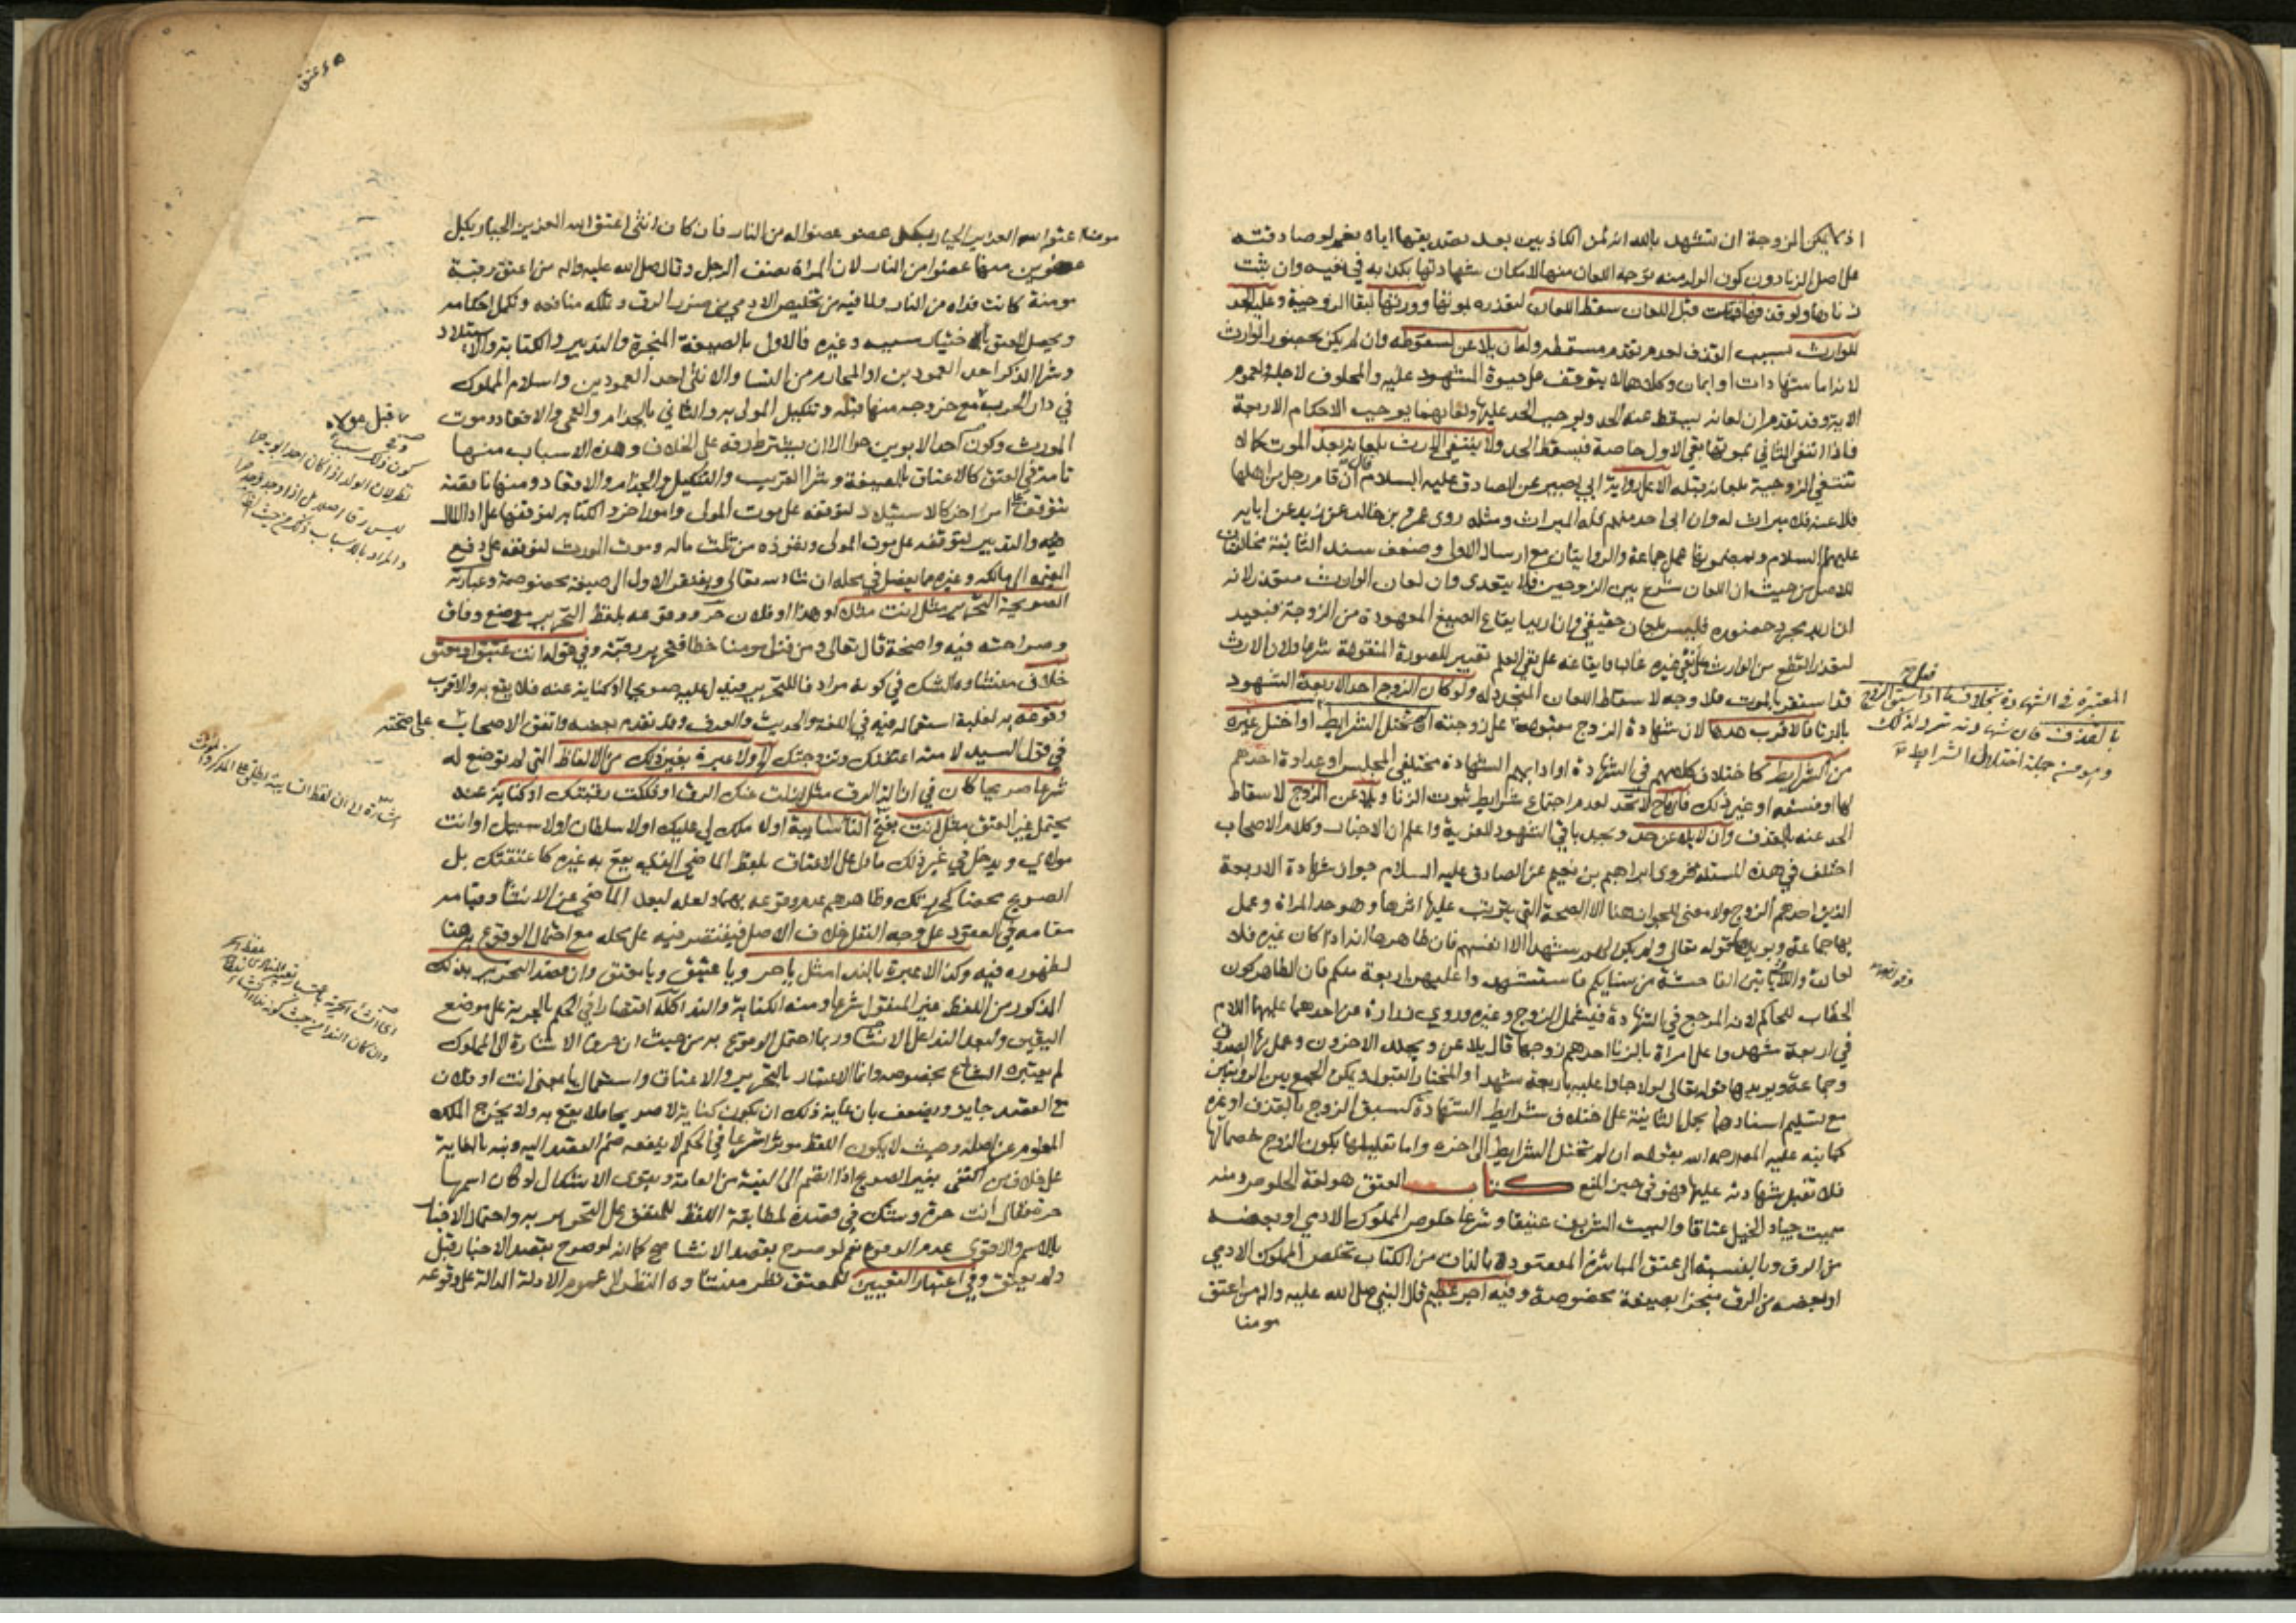 اذ لا يمكن الزوجة ان تشهد بالله انه لمن الكاذبين بعد تصديقها اياه نعم لو صادقته
على اصل الزنا دون كون الولد منه توجه اللعان منها لامكان شهادتها بكذبه في نفيه وان ثبت
زناها ولو قذفها فماتت قبل اللعان سقط اللعان لتعذره بموتها وورثها لبقا الزوجية وعليه الحد
للوارث بسبب القذف لعدم تقدم مسقطه وله ان يلاعن لسقوطه وان لم يكن بحضور الوارث
لانه اما شهادات او ايمان وكلاهما لا يتوقف على حيوة المشهود عليه والمحلوف لاجله ولعموم
الاية وقد تقدم ان لعانه يسقط عنه الحد ويوجب الحد عليها ولعانهما يوجب الاحكام الاربعة
فاذا انتفى الثاني بموتها بقي الاول خاصة فيسقط الحد ولا ينتفي الارث بلعانه بعد الموت كما لا
تنتفي الزوجية بلعانه قبله الا على رواية ابي بصير عن الصادق عليه السلام قال ان قام رجل من اهلها
فلاعنه فلا ميراث له وان ابى احد منهم فله الميراث ومثله روى عمرو بن خالد عن زيد عن ابايه
عليهم السلام وبمضمونها عمل جماعة والروايتان مع ارسال الاولى وضعف سند الثانية مخالفتان
للاصل من حيث ان اللعان شرع بين الزوجين فلا يتعدى وان لعان الوارث متعذر لانه
ان اريد مجرد حضوره فليس بلعان حقيقي وان اريد ايقاع الصيغ المعهودة من الزوجة فبعيد
لتعذر القطع من الوارث على نفي غيره غالبا وايقاعه على نفي العلم تغيير للصورة المنقولة شرعا ولان الارث
قد استقر بالموت فلا وجه لاسقاط اللعان المتجدد له ولو كان الزوج احد الاربعة الشهود
بالزنا فالاقرب حدها لان شهادة الزوج مقبولة على زوجته ان لم تختل الشرايط او اختل غيره
من الشرايط كاختلاف كلامهم في الشهادة او ادايهم الشهادة مختلفي المجلس او عداوة احدهم
لها او فسقه او غير ذلك فانها ح لا تحد لعدم اجتماع شرايط ثبوت الزنا ويلاعن الزوج لاسقاط
الحد عنه بالقذف وان لا يلاعن حد ويحد باقي الشهود للفرية واعلم ان الاخبار وكلام الاصحاب
اختلف في هذه المسئلة فروى ابراهيم بن نعيم عن الصادق عليه السلام جواز شهادة الاربعة
الذين احدهم الزوج ولا معنى للجواز هنا الا الصحة التي يترتب عليها اثرها وهو حد المراة وعمل
بها جماعة ويويدها قوله تعالى ولم يكن لهم شهدا الا انفسهم فان ظاهرها انه اذا كان غيره فلا
لعان واللاتي ياتين الفاحشة من نسايكم فاستشهدوا عليهن اربعة منكم فان الظاهر كون
الخطاب للحاكم لانه المرجع في الشهادة فيشمل الزوج وغيره وروى زرارة عن احدهما عليهما السلام
في اربعة شهدوا على امراة بالزنا احدهم زوجها قال يلاعن ويجلد الاخرون وعمل بها الصدوق
وجماعة ويويدها قوله تعالى لولا جاوا عليه باربعة شهدا والمختار القبول ويمكن الجمع بين الروايتين
مع تسليم اسنادهما بحمل الثانية على اختلاف شرايط الشهادة كسبق الزوج بالقذف او غيره
كما نبه عليه المص رحمه الله بقوله ان لم تختل الشرايط الى اخره واما تعليلها بكون الزوج خصما لها
فلا تقبل شهادته عليها فهو في حيز المنع كتاب العتق هو لغة الخلوص ومنه
سميت جياد الخيل عتاقا والبيت الشريف عتيقا وشرعا خلوص المملوك الادمي او بعضه
من الرق وبالنسبة الى عتق المباشرة المقصودة بالذات من الكتاب تخلص المملوك الادمي
او بعضه من الرق منجزا بصيغة مخصوصة وفيه اجر عظيم قال النبي صلى الله عليه واله من اعتق
مومنا
المعتبرة في الشهادة بخلاف ما اذا سبق الزوج
بالقذف فان شهادته ترد لذلك
وهو من جملة اختلال الشرايط
وقوله تعالى
٥ ء عتق
مومنا اعتق الله العزيز الجبار بكل عضو عضوا له من النار فان كان انثى اعتق الله العزيز الجبار بكل
عضوين منها عضوا من النار لان المراة نصف الرجل وقال صلى الله عليه واله من اعتق رقبة
مومنة كانت فداه من النار ولما فيه من تخليص الادمي من ضرر الرق وتملك منافعه وتكمل احكامه
ويحصل العتق باختيار سببه وغيره فالاول بالصيغة المنجزة والتدبير والكتابة والاستيلاد
وشرا الذكر احد العمودين او المحارم من النسا والانثى احد العمودين واسلام المملوك
في دار الحرب مع خروجه منها قبله وتنكيل المولى به والثاني بالجذام والعمى والاقعاد وموت
المورث وكون احد الابوين حرا الا ان يشترط رقه على الخلاف وهذه الاسباب منها
تامة في العتق كالاعتاق بالصيغة وشرا القريب والتنكيل والجذام والاقعاد ومنها ناقصة
تتوقف على امر اخر كالاستيلاد لتوقفه على موت المولى وامور اخر والكتابة لتوقفها على ادا المال
والتدبير لتوقفه على موت المولى ونفوذه من ثلث ماله وموت المورث لتوقفه على دفع
القيمة الى مالكه وغيره مما يفصل في محله ان شاء الله تعالى ويفتقر الاول الى صيغة مخصوصة وعبارته
الصريحة التحرير مثل انت مثلا او هذا او فلان حر ووقوعه بلفظ التحرير موضع وفاق
وصراحته فيه واضحة قال تعالى ومن قتل مومنا خطا فتحرير رقبة وفي قوله انت عتيق او معتق
خلاف منشاوه الشك في كونه مرادفا للتحرير فيدل عليه صريحا او كناية عنه فلا يقع به والاقرب
وقوعه به لغلبة استعماله فيه في اللغة والحديث والعرف وقد تقدم بعضه واتفق الاصحاب على صحته
في قول السيد لامته اعتقتك وتزوجتك الخ ولا عبرة بغير ذلك من الالفاظ التي لم توضع له
شرعا صريحا كان في ازالة الرق مثل ازلت عنك الرق او فككت رقبتك او كناية عنه
يحتمل غير العتق مثل انت بفتح التا سايبة او لا ملك لي عليك او لا سلطان او لا سبيل او انت
مولاي ويدخل في غير ذلك ما دل على الاعتاق بلفظ الماضي الذي يقع به غيره كاعتقتك بل
الصريح محضا كحررتك وظاهرهم عدم وقوعه بهما ولعله لبعد الماضي عن الانشا وقيامه
مقامه في العقود على وجه النقل خلاف الاصل فيقتصر فيه على محله مع احتمال الوقوع به هنا
لظهوره فيه وكذا لا عبرة بالندا مثل يا حر ويا عتيق ويا معتق وان قصد التحرير بذلك
المذكور من اللفظ غير المنقول شرعا ومنه الكناية والندا كله اقتصارا في الحكم بالحرية على موضع
اليقين ولبعد الندا عن الانشا وربما احتمل الوقوع به من حيث ان حرف الاشارة الى المملوك
لم يعتبره الشارع بخصوصه وانما الاعتبار بالتحرير والاعتاق واستعمال يا بمعنى انت او فلان
مع القصد جايز ويضعف بان غاية ذلك ان يكون كناية لا صريحا فلا يقع به ولا يخرج الملك
المعلوم عن اصله وحيث لا يكون اللفظ موثرا شرعا في الحكم لا ينفعه ضم القصد اليه ونبه بالغاية
على خلاف من اكتفى بغير الصريح اذا انضم الى النية من العامة ويقوى الاشكال لو كان اسمها
حرة فقال انت حرة وشك في قصده لمطابقة اللفظ للمتفق على التحرير به واحتمال الاخبار
بالاسم والاقوى عدم الوقوع نعم لو صرح بقصد الانشا صح كما انه لو صرح بقصد الاخبار قبل
ولم يعتق وفي اعتبار التعيين للمعتق نظر منشاوه النظر الى عموم الادلة الدالة على وقوعه
قبل مولاه